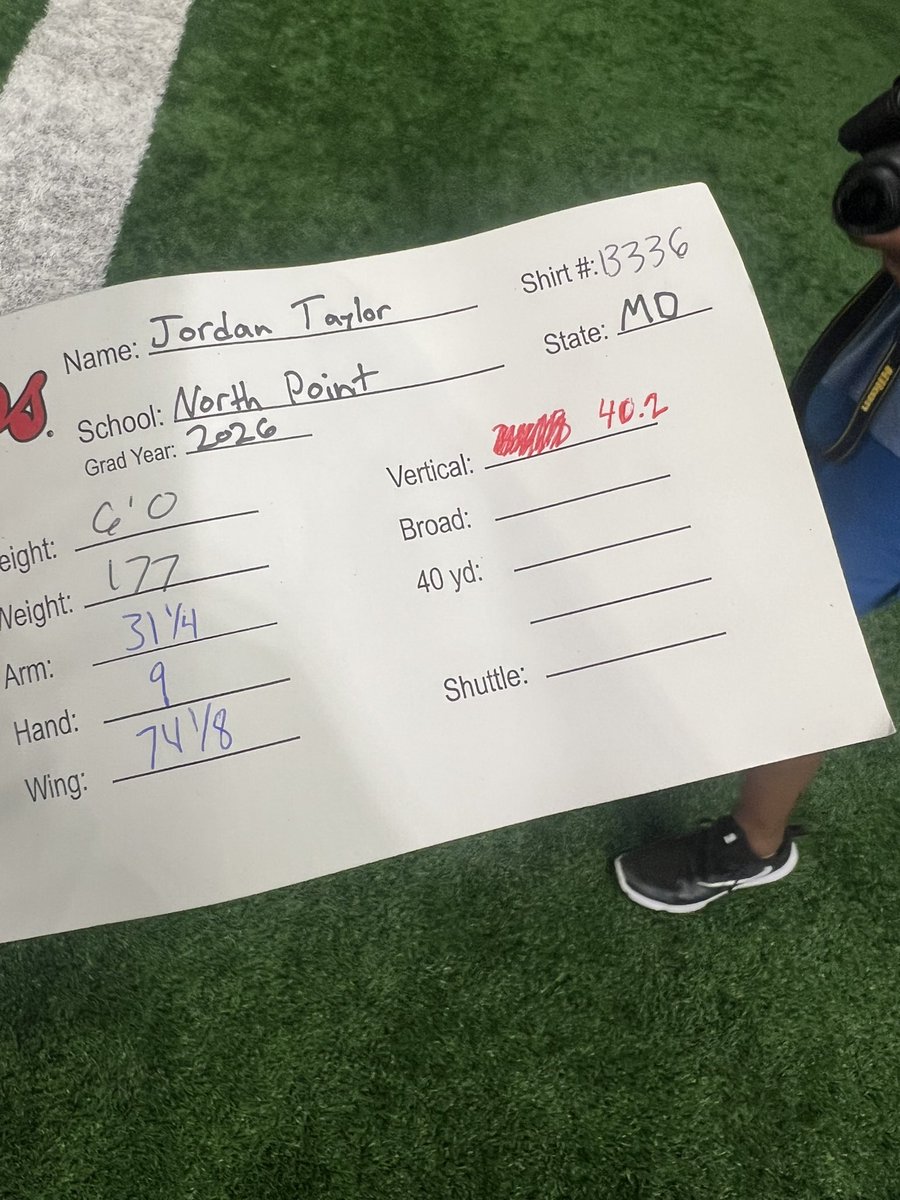 Name: Jordan Taylor
Shirt #: 13336
School: North Point
State: MD
Grad Year: 2026
eight: 6'0
Weight: 177
Arm: 31 1/4
Hand: 9
Wing: 74 1/8
Vertical: 40.2
Broad:
40 yd:
Shuttle: